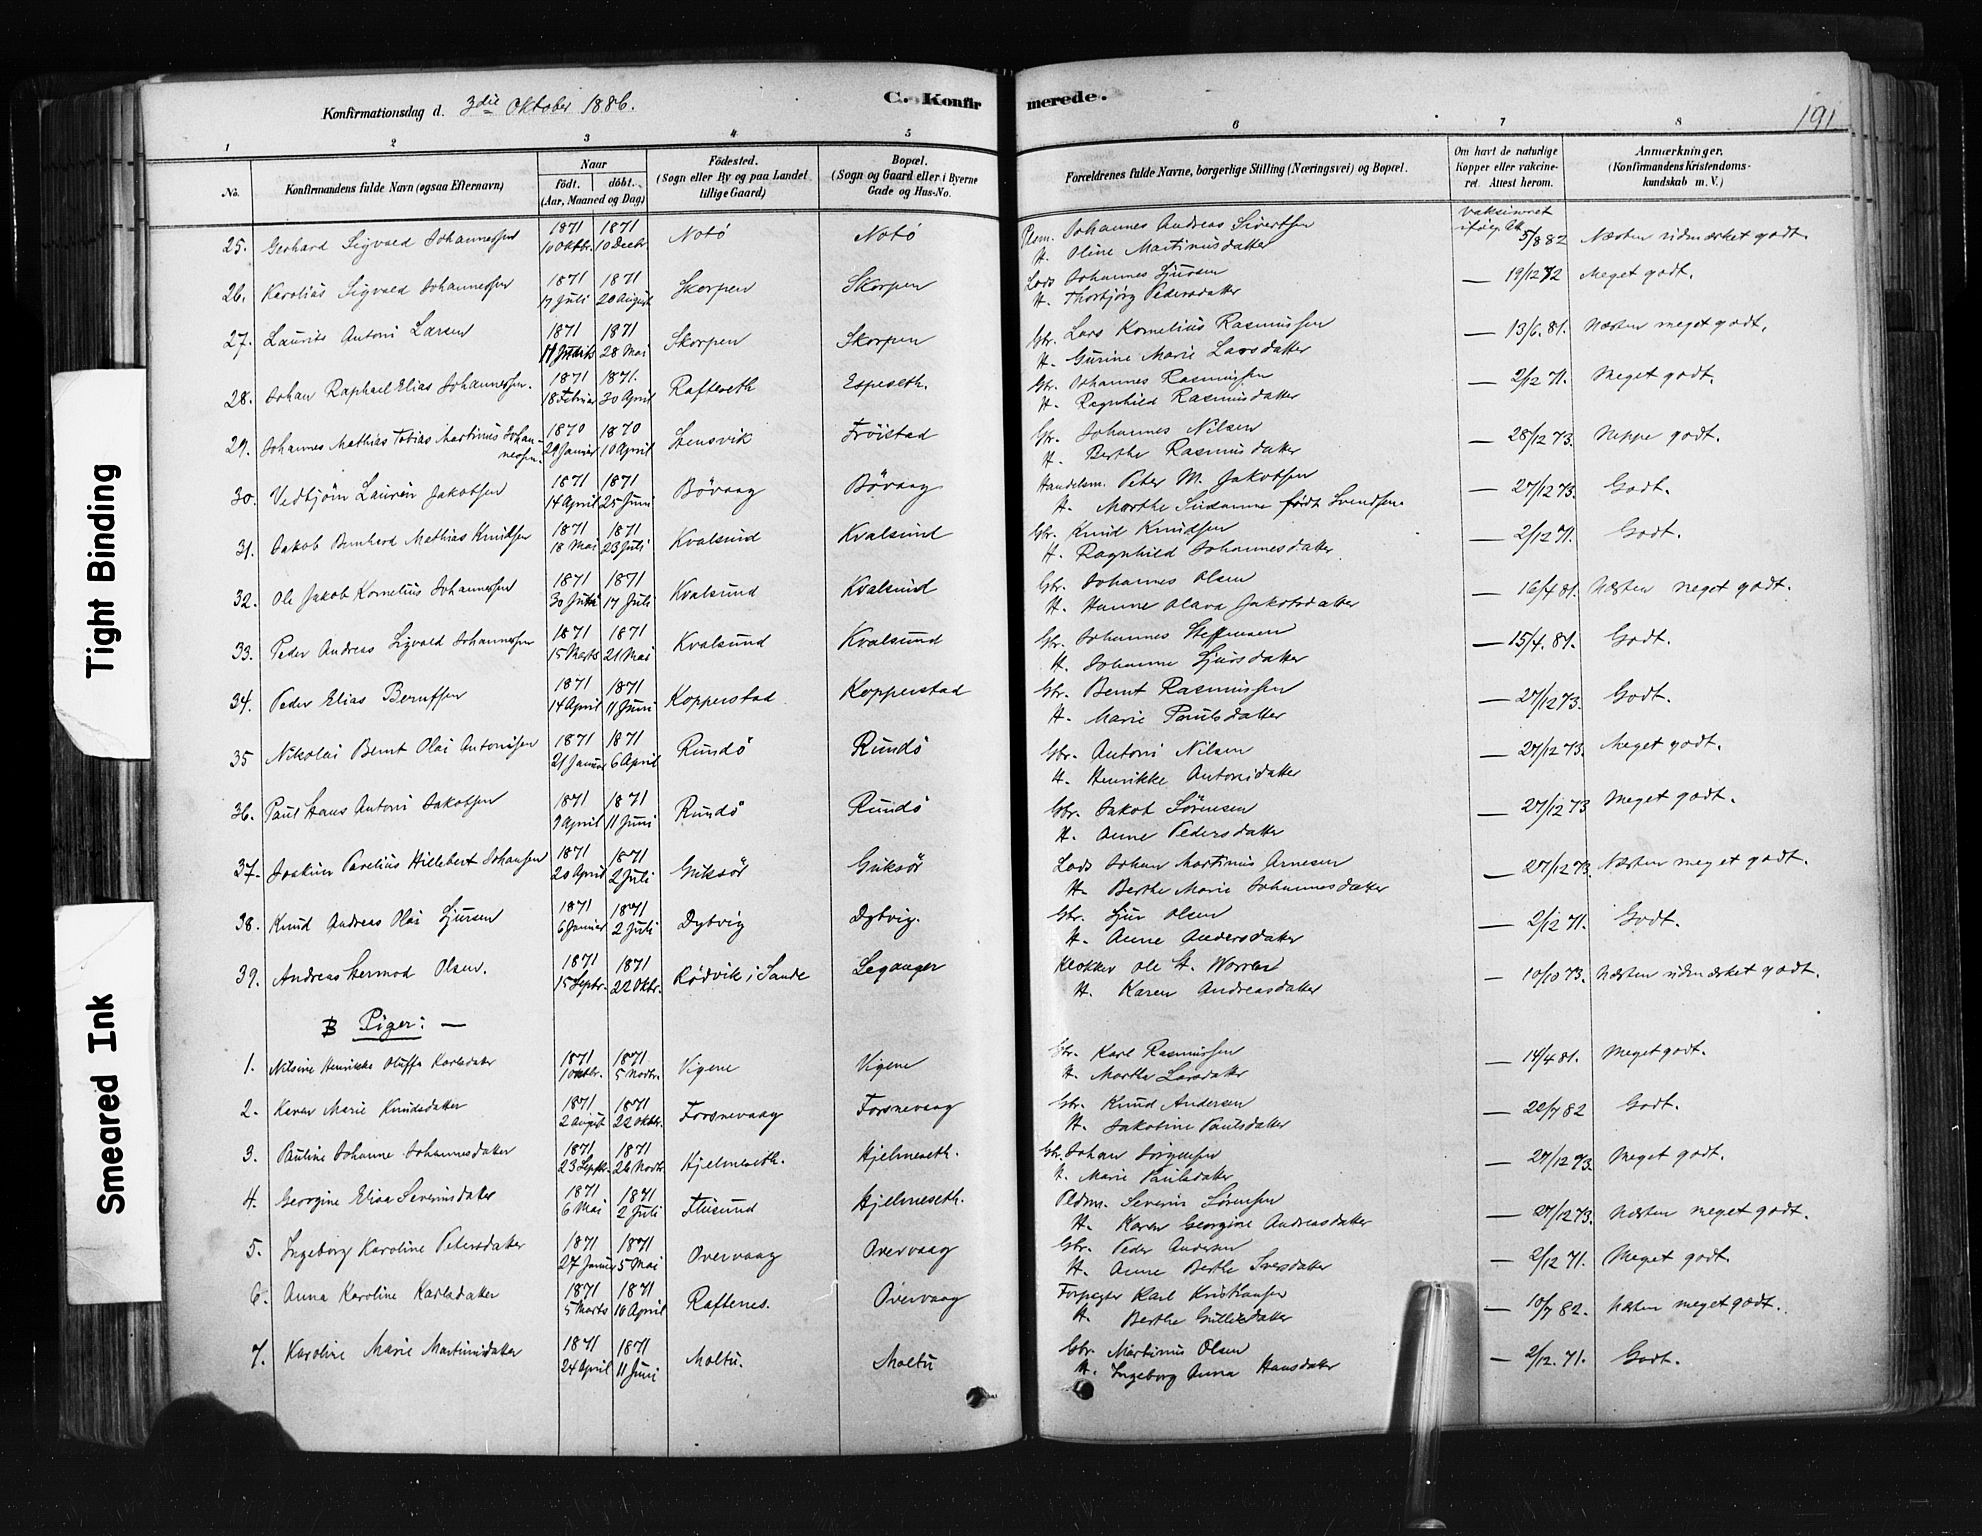 Konfirmationsdag d. 3die Oktober 1886.
C. Konfir
merede.
191
1 2 3 4 5 6 7 8
No.
Konfirmandens fulde Navn (ogsaa Efternavn)
Naar
födt. döbt.
(Aar, Maaned og Dag)
Födested.
(Sogn eller By og paa Landet
tillige Gaard)
Bopæl.
(Sogn og Gaard eller i Byerne
Gade og Hus-No.
Forældrenes fulde Navne, borgerlige Stilling (Næringsvei) og Bopæl.
Om havt de naturlige
Kopper eller vakcine-
ret. Attest herom.
Anmærkninger.
(Konfirmandens Kristendoms-
kundskab m. V.)
25. Gerhard Sigvald Johannessen 1871 10 Oktbr. 1871 10 Decbr. Notö Notö Johannes Andreas Sivertsen H. Oline Martinusdatter vaksineret 5/8 82 Næsten udmærket godt.
26. Karolius Sigvald Johannessen 1871 17 Juli 1871 20 August Skorpen Skorpen Lods Johannes Sjursen H. Thorbjörg Pedersdatter — 19/12 72 Meget godt.
27. Laurits Antoni Larsen 1871 1871 28 Mai Skorpen Skorpen Gbr. Lars Kornelius Rasmussen H. Gurine Marie Larsdatter — 13/6. 81. Næsten meget godt.
28. Johan Raphael Elias Johannessen. 1871 18 Februar 1871. 30 April Rafteseth Espeseth. Gbr. Johannes Rasmussen H. Ragnhild Rasmusdatter — 2/12 71. Meget godt.
29. Johannes Mathias Tobias Martinus Johannessen. 1870 29 Januar 1870 10 April Lensvik Fröistad Gbr. Johannes Nilsen H. Berthe Rasmusdatter — 28/12 73. Neppe godt.
30. Vedbjörn Laurën Jakobsen 1871 14 April 1871 25 Juni Bövaag Bövaag Handelsm. Peter M. Jakobsen H. Marthe Susanne födt Svendsen — 27/12 73. Godt.
31. Jakob Bernhard Mathias Knudsen 1871 18 Mai 1871 23 Juli Kvalsund Kvalsund Gbr. Knud Knudsen H. Ragnhild Johannesdatter — 2/12 71. Godt.
32. Ole Jakob Kornelius Johannessen 1871 30 1871 17 Juli Kvalsund Kvalsund Gbr. Johannes Olsen H. Hanne Olava Jakobsdatter — 16/4 81. Næsten meget godt.
33. Peder Andreas Sigvald Johannessen 1871 15 Marts 1871 21 Mai Kvalsund Kvalsund Gbr. Johannes Steffensen H. Johanne Sjursdatter — 15/4. 81. Godt.
34. Peder Elias Berntsen 1871 14 April 1871 11 Juni Kopperstad Kopperstad Gbr. Bernt Rasmussen H. Marie Paulsdatter — 27/12 73. Godt.
35 Nikolai Bernt Olai Antonisen 1871 21 Januar 1871 6 April Rundö Rundö Gbr. Antoni Nilsen H. Henrikke Antonidatter — 27/12 73. Meget godt.
36. Paul Hans Antoni Jakobsen 1871 9 April 1871 11 Juni Rundö Rundö Gbr. Jakob Sörensen H. Anne Pedersdatter — 27/12 73 Meget godt.
37. Joakim Parelius Hillebert Johansen 1871 20 April 1871 2 Juli Guksör Guksör Lods Johan Martinus Arnesen H. Berthe Marie Johannesdatter — 27/12 73. Næsten meget godt.
38. Knud Andreas Olai Sjursen 1871 6 Januar 1871 2 Juli Dybvig Dybvig. Gbr. Sjur Olsen H. Anne Andersdatter — 2/12 71. Godt.
39. Andreas Hermod Olsen. 1871 15 Septbr. 1871 22 Oktbr. Rødvik i Sande Leganger Klokker Ole H. H. Karen Andreasdatter — 10/10 73. Næsten udmærket godt.
B Piger: —
1. Nilsine Henrikke Oluffa Karlsdatter 1871 1 Oktbr. 1871 5 Novbr. Vigene Vigene Gbr. Karl Rasmussen H. Marthe Larsdatter — 14/4 81. Meget godt.
2. Karen Marie Knudsdatter 1871 2 August 1871 22 Oktbr. Forsnevaag Forsnevaag Gbr. Knud Andersen H. Jakobine Paulsdatter — 22/7 82 Godt.
3. Pauline Johanne Johannesdatter 1871 23 Septbr. 1871 26 Novbr. Hjelmeseth. Hjelmeseth. Gbr. Johan Jörgensen H. Marie Paulsdatter — 27/12 73. Meget godt.
4. Georgine Elisa Severinsdatter 1871 6 Mai 1871 2 Juli Flusund Hjelmeseth. Severin Sörensen H. Karen Georgine Andreasdatter — 27/12 73. Næsten meget godt.
5. Ingeborg Karoline Petersdatter 1871 27 Januar 1871 5 Mai Overvaag Overvaag Gbr. Peder Andersen H. Anne Berthe Iversdatter — 2/12 71. Meget godt.
6. Anna Karoline Karlsdatter 1871 5 Marts 1871 10 April Raftenes. Overvaag Forpagter Karl Kristiansen H. Berthe Gulliksdatter — 10/7 82. Næsten meget godt.
7. Karoline Marie Martinusdatter 1871 24 April 1871 11 Juni Moltu. Moltu Gbr. Martinus Olsen H. Ingeborg Anna Hansdatter — 2/12. 71. Godt.
Tight Binding
Smeared Ink